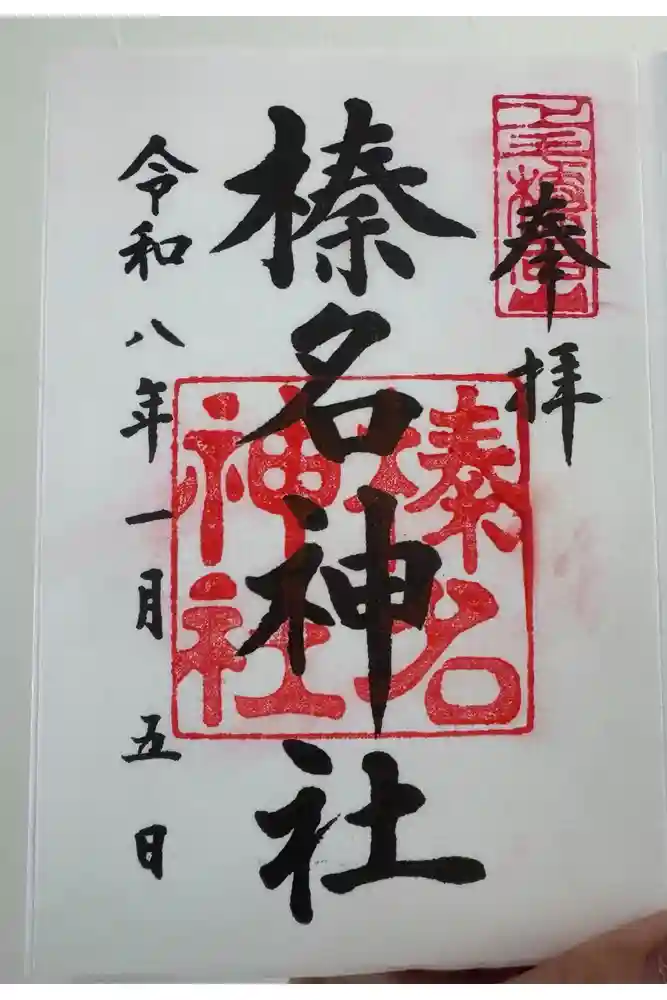 奉拝
榛名神社
榛名
神社
令和八年一月五日